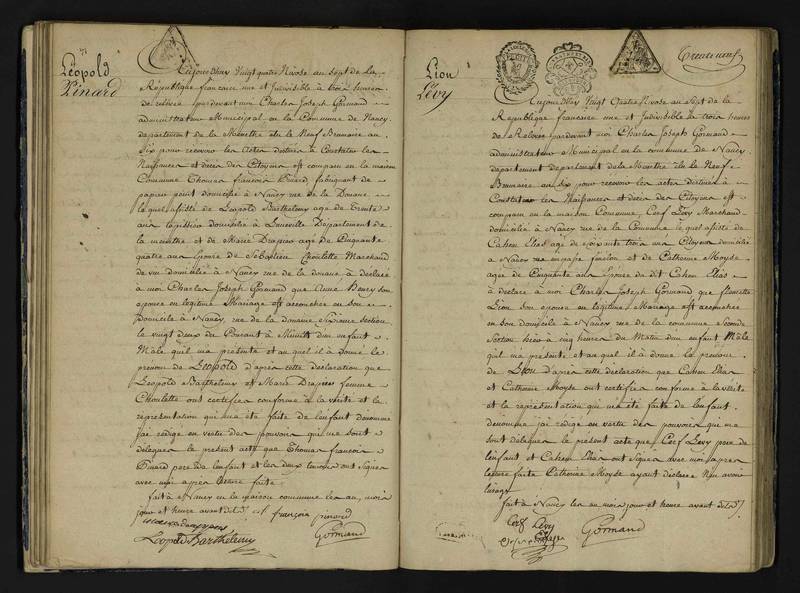 Léopold
Pinard
Aujourd'huy Vingt quatre Nivose an sept de la
République francaise une et Indivisible à trois heures
de relevée pardevant moi Charles Joseph Gormand
administrateur Municipal en la Commune de Nancy
département de la Meurthe élu le Neuf Brumaire an
Six pour recevoir les actes destinés à Constater les
Naissances et décès des Citoyens est comparu en la maison
Commune Thomas françois Pinard fabriquant de
papiers peint domicilié à Nancy rue de la Douane
lequel assisté de Léopold Barthelemy agé de Trente
ans tapissier domicilié à Luneville Département de
la meurthe et de Marie Drapier agé de Cinquante
quatre ans Epouse de Sébastien Choulotte Marchand
de vin domicilié à Nancy rue de la douane à déclaré
à moi Charles Joseph Gormand que Anne Henry son
epouse en légitime Mariage est accouchée en son
Domicile à Nancy rue de la douane Sixieme section
le vingt deux du Courant à Minuit d'un enfant
Mâle qu'il m'a présenté et auquel il à donné le
prénom de Léopold d'après cette déclaration que
Léopold Barthelemy et Marie Drapier femme
Choulotte ont certifiée conforme à la vérité et la
représentation qui m'a été faite de l'enfant dénommé
j'ai rédigé en vertu des pouvoirs qui me sont
délégués le présent acte que Thomas francois
Pinard pere de l'enfant et les deux temoins ont Signés
avec moi après lecture faite
fait à Nancy en la maison commune les an, mois
jour et heure avant dits
françois pinard
Léopold Barthelemy
Gormand
Lion
Lévy
Trente neuf
Aujourd'huy Vingt Quatre Nivose an sept de la
République francaise une et Indivisible à trois heures
de Relevée pardevant moi Charles Joseph Gormand
administrateur Municipal en la commune de Nancy
département de la Meurthe élu le Neuf
Brumaire an six pour recevoir les actes destinés à
Constater les Naissances et décès des Citoyens est
comparu en la maison Commune, Cerf Lévy Marchand
domicilié à Nancy rue de la Commune lequel assisté de
Cahen Elias agé de soixante trois ans Citoyen domicilié
à Nancy et de Catherine Moyse
agée de Cinquante ans Epouse du dit Cahen Elias
à déclaré à moi Charles Joseph Gormand que fleurette
Lion son epouse en légitime Mariage est accouchée
en son domicile à Nancy rue de la commune Seconde
Section hier à cinq heures du Matin d'un enfant Mâle
qu'il m'a présenté et auquel il à donné le prénom
de Lion d'après cette déclaration que Cahen Elias
et Catherine Moyse ont certifiée conforme à la vérité
et la représentation qui m'a été faite de l'enfant
dénommé j'ai rédigé en vertu des pouvoirs qui me
sont délégués le présent acte que Cerf Levy pere de
l'enfant et Cahen Elias ont Signés avec moi après
lecture faite Catherine Moyse ayant déclaré n'en avoir
l'usage
fait à Nancy les an mois jour et heure avant dits
Cerf Lévy
Gormand